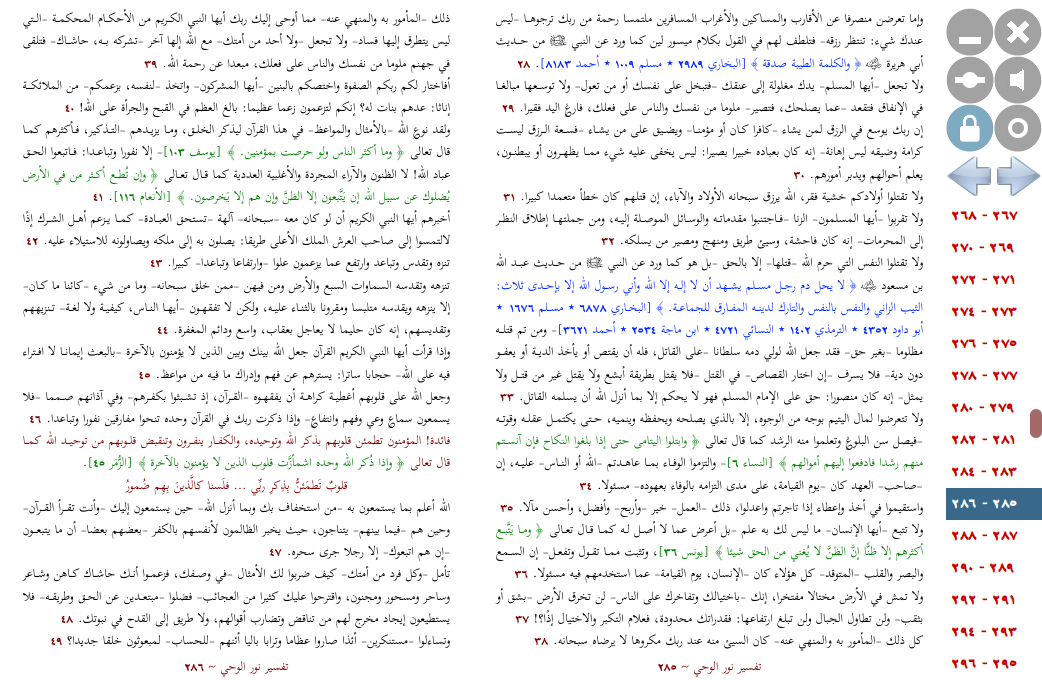 وإما تعرضن منصرفا عن الأقارب والمساكين والأغراب المسافرين ملتمسا رحمة من ربك ترجوها -ليس
عندك شيء: تنتظر رزقه- فتلطف لهم في القول بكلام ميسور لين كما ورد عن النبي ﷺ من حديث
أبي هريرة ﷺ ﴿ والكلمة الطيبة صدقة ﴾ [البخاري ٢٩٨٩ * مسلم ١٠٠٩ * أحمد ٨١٨٣]. ٢٨
ولا تجعل -أيها المسلم- يدك مغلولة إلى عنقك -فتبخل على نفسك أو من تعول- ولا توسعها مبالغا
في الإنفاق فتقعد -عما يصلحك، فتصير- ملوما من نفسك والناس على فعلك، فارغ اليد فقيرا. ٢٩
إن ربك يوسع في الرزق لمن يشاء -كافرا كان أو مؤمنا- ويضيق على من يشاء -فسعة الرزق ليست
كرامة وضيقه ليس إهانة- إنه كان بعباده خبيرا بصيرا: ليس يخفى عليه شيء مما يظهرون أو يبطنون،
يعلم أحوالهم ويدبر أمورهم. ٣٠
ولا تقتلوا أولادكم خشية فقر، الله يرزق سبحانه الأولاد والآباء، إن قتلهم كان خطأ متعمدا كبيرا. ٣١
ولا تقربوا -أيها المسلمون- الزنا -فاجتنبوا مقدماته والوسائل الموصلة إليه، ومن جملتها إطلاق النظر
إلى المحرمات- إنه كان فاحشة، وسيئ طريق ومنهج ومصير من يسلكه. ٣٢
ولا تقتلوا النفس التي حرم الله -قتلها- إلا بالحق -بل هو كما ورد عن النبي ﷺ من حديث عبد الله
بن مسعود ﴿ لا يحل دم رجل مسلم يشهد أن لا إله إلا الله وأني رسول الله إلا بإحدى ثلاث:
الثيب الزاني والنفس بالنفس والتارك لدينه المفارق للجماعة. ﴾ [البخاري ٦٨٧٨ * مسلم ١٦٧٦ *
أبو داود ٤٣٥٢ * الترمذي ١٤٠٢ * النسائي ٤٧٢١ * ابن ماجة ٢٥٣٤ * أحمد ٣٦٢١]- ومن تم قتله
مظلوما -بغير حق- فقد جعل الله لولي دمه سلطانا -على القاتل، فله أن يقتص أو يأخذ الدية أو يعفو
دون دية- فلا يسرف -إن اختار القصاص- في القتل -فلا يقتل بطريقة أبشع ولا يقتل غير من قتل ولا
يمثل- إنه كان منصورا: حق على الإمام المسلم فهو لا يحكم إلا بما أنزل الله أن يسلمه القاتل. ٣٣
ولا تتعرضوا لمال اليتيم بوجه من الوجوه، إلا بالذي يصلحه ويحفظه وينميه، حتى يكتمل عقله وقوته
-فيصل سن البلوغ وتعلموا منه الرشد كما قال تعالى ﴿ وابتلوا اليتامى حتى إذا بلغوا النكاح فإن آنستم
منهم رشدا فادفعوا إليهم أموالهم ﴾ [النساء ٦]- والتزموا الوفاء بما عاهدتم -الله أو الناس- عليه، إن
-صاحب- العهد كان -يوم القيامة، على مدى التزامه بالوفاء بعهوده- مسئولا. ٣٤
واستقيموا في أخذ وإعطاء إذا تاجرتم واعدلوا، ذلك -العمل- خير -وأربح- وأفضل، وأحسن مآلا. ٣٥
ولا تتبع -أيها الإنسان- ما ليس لك به علم -بل أعرض عما لا أصل له كما قال تعالى ﴿ وما يَتَّبِع
أكثرهم إلا ظنًّا إنَّ الظنَّ لا يُغني من الحق شيئا ﴾ [يونس ٣٦]، وتثبت مما تقول وتفعل- إن السمع
والبصر والقلب -المتوقد- كل هؤلاء كان -الإنسان، يوم القيامة- عما استخدمهم فيه مسئولا. ٣٦
ولا تمش في الأرض مختالا مفتخرا، إنك -باختيالك وتفاخرك على الناس- لن تخرق الأرض -بشق أو
بثقب- ولن تطاول الجبال ولن تبلغ ارتفاعها: فقدراتك محدودة، فعلام التكبر والاختيال إذًا؟! ٣٧
كل ذلك -المأمور به والمنهي عنه- كان السيئ منه عند ربك مكروها لا يرضاه سبحانه. ٣٨
تفسير نور الوحي ~ ٢٨٥
ذلك -المأمور به والمنهي عنه- مما أوحى إليك ربك أيها النبي الكريم من الأحكام المحكمة -التي
ليس يتطرق إليها فساد- ولا تجعل -ولا أحد من أمتك- مع الله إلها آخر -تشركه به، حاشاك- فتلقى
في جهنم ملوما من نفسك والناس على فعلك، مبعدا عن رحمة الله. ٣٩
أفاختار لكم ربكم الصفوة واختصكم بالبنين -أيها المشركون- واتخذ -لنفسه، بزعمكم- من الملائكة
إناثا: عدهم بنات له؟ إنكم لتزعمون زعما عظيما: بالغ العظم في القبح والجرأة على الله! ٤٠
ولقد نوع الله -بالأمثال والمواعظ- في هذا القرآن ليذكر الخلق، وما يزيدهم -التذكير، فأكثرهم كما
قال تعالى ﴿ وما أكثر الناس ولو حرصت بمؤمنين. ﴾ [يوسف ١٠٣]- إلا نفورا وتباعدا: فاتبعوا الحق
عباد الله! لا الظنون والآراء المجردة والأغلبية العددية كما قال تعالى ﴿ وإن تُطع أكثر من في الأرض
يُضلوك عن سبيل الله إن يتَّبعون إلا الظنَّ وإن هم إلا يَخرصون. ﴾ [الأنعام ١١٦]. ٤١
أخبرهم أيها النبي الكريم أن لو كان معه -سبحانه- آلهة -تستحق العبادة- كما يزعم أهل الشرك إذًا
لالتمسوا إلى صاحب العرش الملك الأعلى طريقا: يصلون به إلى ملكه ويصاولونه للاستيلاء عليه. ٤٢
تنزه وتقدس وتباعد وارتفع عما يزعمون علوا -وارتفاعا وتباعدا- كبيرا. ٤٣
تنزهه وتقدسه السماوات السبع والأرض ومن فيهن -ممن خلق سبحانه- وما من شيء -كائنا ما كان-
إلا ينزهه ويقدسه متلبسا ومقرونا بالثناء عليه، ولكن لا تفقهون -أيها الناس، كيفية ولا لغة- تنزيههم
وتقديسهم، إنه كان حليما لا يعاجل بعقاب، واسع ودائم المغفرة. ٤٤
وإذا قرأت أيها النبي الكريم القرآن جعل الله بينك وبين الذين لا يؤمنون بالآخرة -بالبعث إيمانا لا افتراء
فيه على الله- حجابا ساترا: يسترهم عن فهم وإدراك ما فيه من مواعظ. ٤٥
وجعل الله على قلوبهم أغطية كراهة أن يفقهوه -القرآن، إذ تشبثوا بكفرهم- وفي آذانهم صمما -فلا
يسمعون سماع وعي وفهم وانتفاع- وإذا ذكرت ربك في القرآن وحده تنحوا مفارقين نفورا وتباعدا. ٤٦
فائدة! المؤمنون تطمئن قلوبهم بذكر الله وتوحيده، والكفار ينفرون وتنقبض قلوبهم من توحيد الله كما
قال تعالى ﴿ وإذا ذُكر الله وحده اشمأزَّت قلوب الذين لا يؤمنون بالآخرة ﴾ [الزُّمَر ٤٥].
قلوبٌ تَطمَئنُّ بِذِكرِ ربِّي ... فلَسنا كالَّذينَ بِهم ضُمورُ
الله أعلم بما يستمعون به -من استخفاف بك وبما أنزل الله- حين يستمعون إليك -وأنت تقرأ القرآن-
وحين هم -فيما بينهم- يتناجون، حيث يخبر الظالمون لأنفسهم بالكفر -بعضهم بعضا- أن ما يتبعون
-إن هم اتبعوك- إلا رجلا جرى سحره. ٤٧
تأمل -وكل فرد من أمتك- كيف ضربوا لك الأمثال -في وصفك، فزعموا أنك حاشاك كاهن وشاعر
وساحر ومسحور ومجنون، واقترحوا عليك كثيرا من العجائب- فضلوا -مبتعدين عن الحق وطريقه- فلا
يستطيعون إيجاد مخرج لهم من تناقض وتضارب أقوالهم، ولا طريق إلى القدح في نبوتك. ٤٨
وتساءلوا -مستنكرين- أئذا صاروا عظاما وترابا باليا أئنهم -للحساب- لمبعوثون خلقا جديدا؟ ٤٩
تفسير نور الوحي ~ ٢٨٦
٢٦٧ - ٢٦٨
٢٦٩ - ٢٧٠
٢٧١ - ٢٧٢
٢٧٣ - ٢٧٤
٢٧٥ - ٢٧٦
٢٧٧ - ٢٧٨
٢٧٩ - ٢٨٠
٢٨١ - ٢٨٢
٢٨٣ - ٢٨٤
٢٨٥ - ٢٨٦
٢٨٧ - ٢٨٨
٢٨٩ - ٢٩٠
٢٩١ - ٢٩٢
٢٩٣ - ٢٩٤
٢٩٥ - ٢٩٦